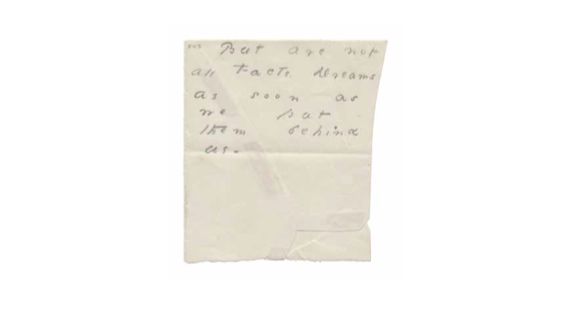 But are not
all Facts Dreams
as soon as
we put
them behind
us.